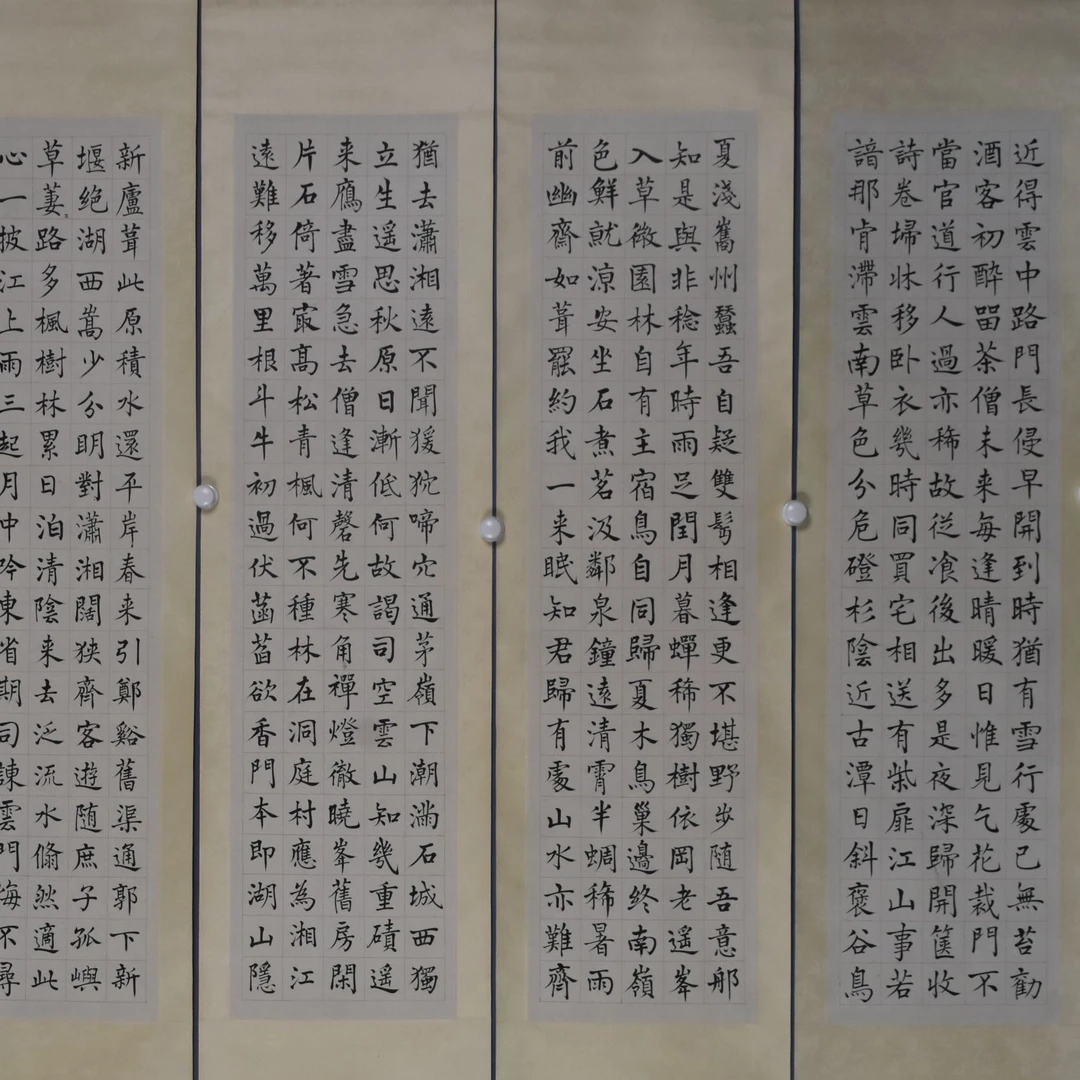 近得雲中路門長侵早開到時猶有雪行處已無苔勸
酒客初醉留茶僧未来每逢晴暖日惟見乞花裁門不
當官道行人過亦稀故從飡後出多是夜深歸開篋收
詩卷埽牀移卧衣幾時同買宅相送有柴扉江山事若
諳那肎滯雲南草色分危磴杉陰近古潭日斜褒谷鳥
夏淺嶲州蠶吾自疑雙鬂相逢更不堪野步随吾意那
知是與非稔年時雨足閏月暮蟬稀獨樹依岡老遥峯
入草微園林自有主宿鳥自同歸夏木鳥巢邊終南嶺
色鮮就涼安坐石煮茗汲鄰泉鐘遠清霄半蜩稀暑雨
前幽齋如葺罷約我一来眠知君歸有處山水亦難齊
猶去瀟湘遠不聞猨狖啼穴通茅嶺下潮满石城西獨
立生遥思秋原日漸低何故謁司空雲山知幾重磧遥
来鴈盡雪急去僧逢清磬先寒角禪燈徹曉峯舊房閑
片石倚著最高松青楓何不種林在洞庭村應為湘江
遠難移萬里根斗牛初過伏菡萏欲香門本即湖山隱
新廬葺此原積水還平岸春来引鄭谿舊渠通郭下新
堰絶湖西嵩少分明對瀟湘闊狹齊客遊随庶子孤嶼
草萋路多楓樹林累日泊清陰来去泛流水翛然適此
心一披江上雨三起月中吟東省期司諫雲門悔不尋